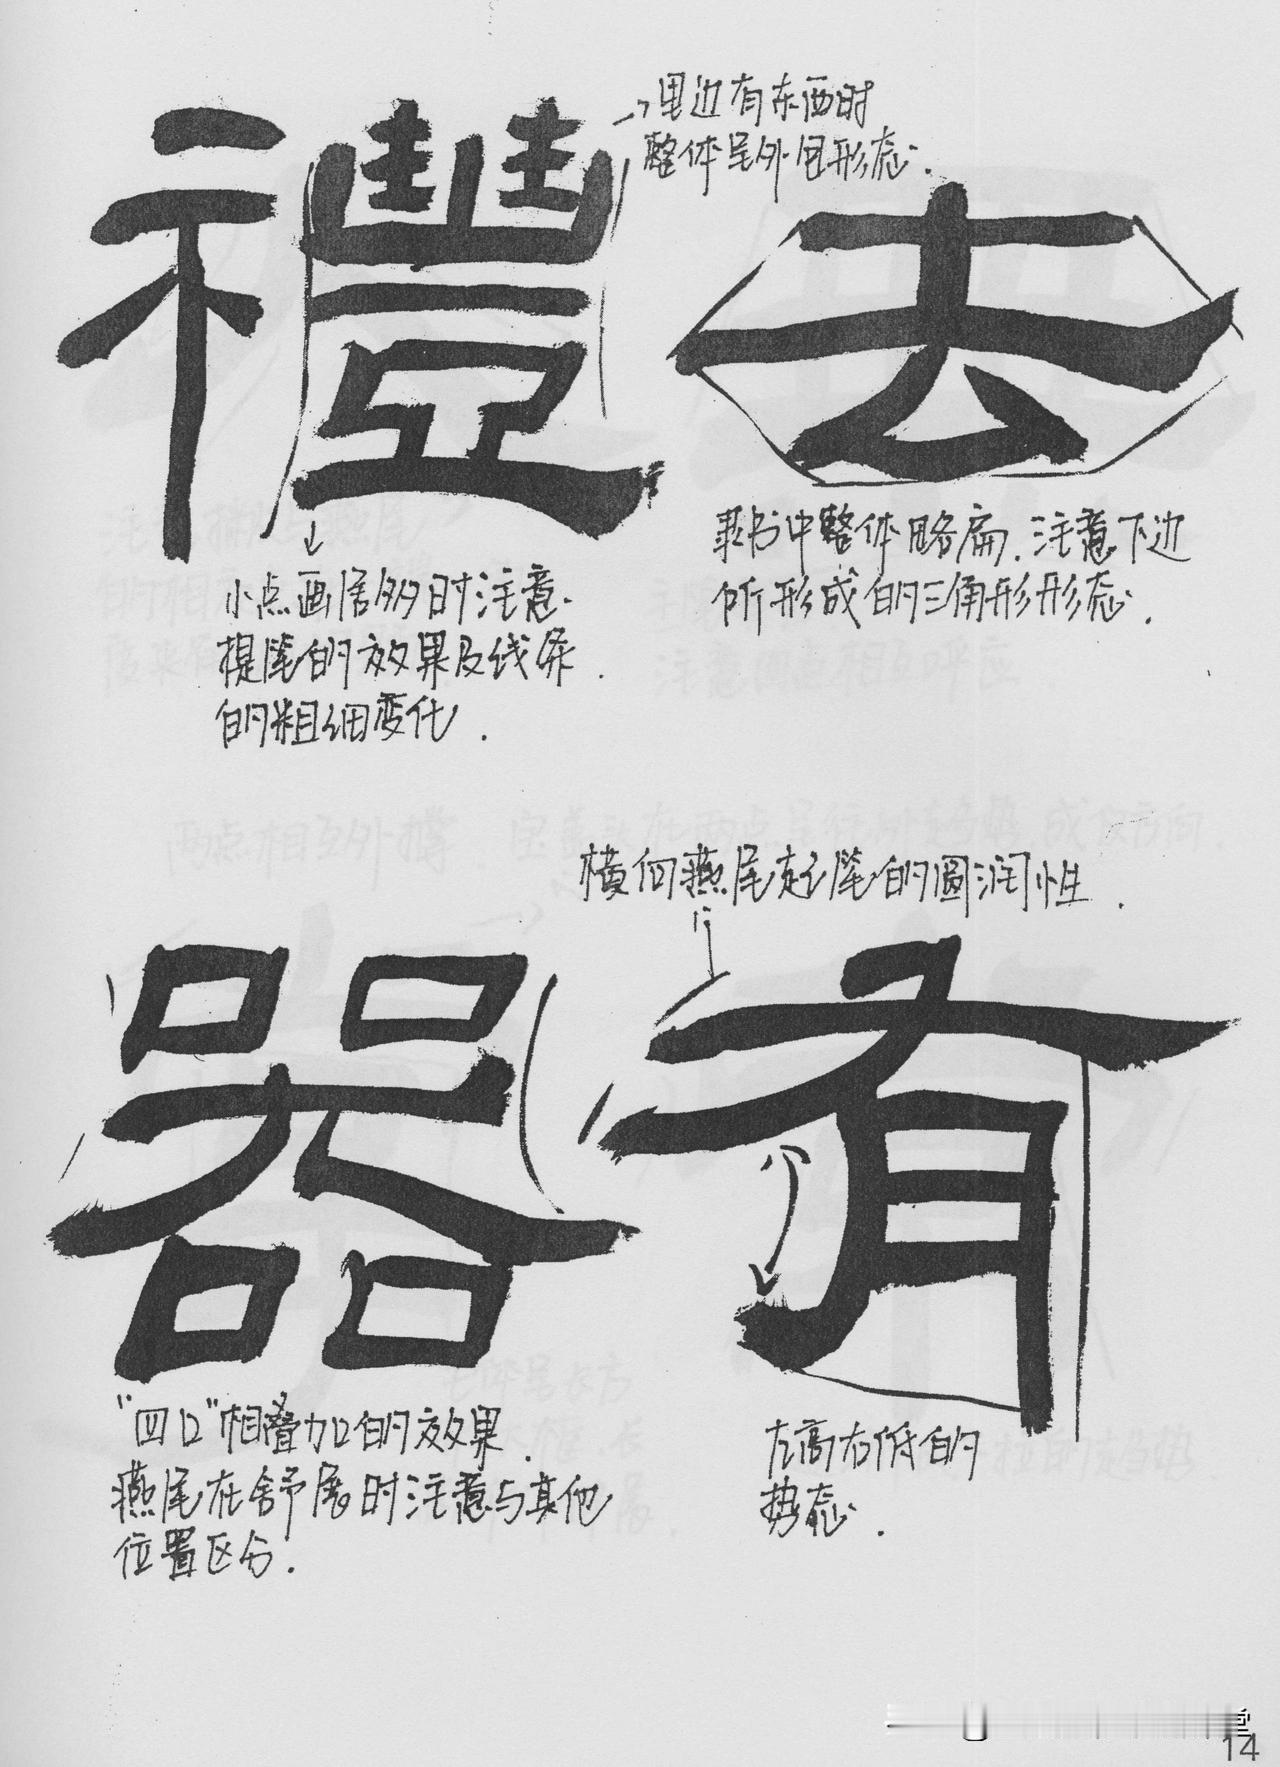 里边有东西时
整体呈外包形态.
禮
去
隶书中整体略扁.注意下边
所形成的三角形形态.
小点画居多时注意.
提笔的效果及线条.
的粗细变化.
横向燕尾起笔的圆润性.
器
有
"四口"相叠加的效果.
燕尾在舒展时注意与其他
位置区分.
左高右低的
势态.
14